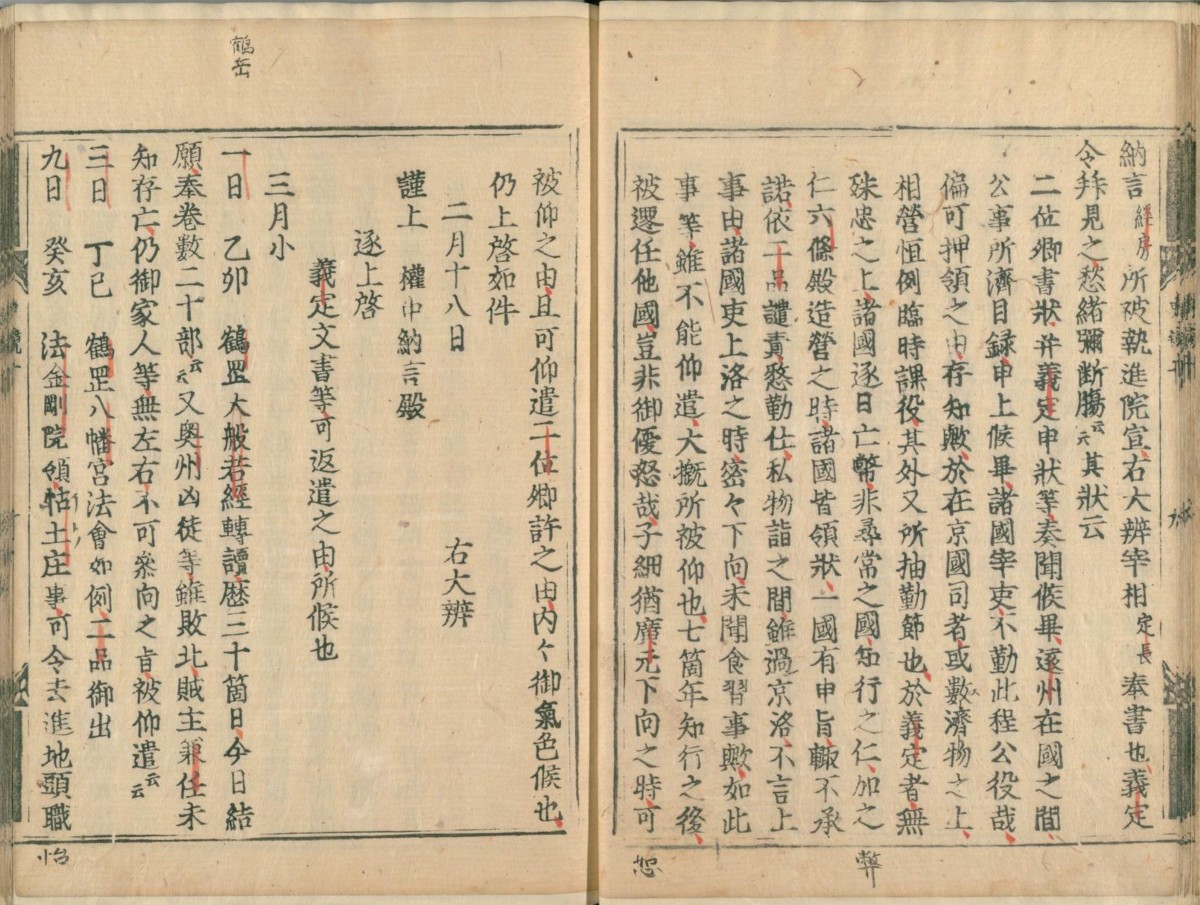 納言經房所被執進院宣右大辨宰相定長奉書也義定
令拜見之愁緒彌断膓云々其狀云
二位卿書狀并義定申狀等奏聞候畢遠州在國之間
公事所濟目録申上候畢諸國宰吏不勤此程公役哉
偏可押領之由存知歟於在京國司者或數濟物之上
相營恒例臨時課役其外又所抽勤節也於義定者無
殊忠之上諸國逐日亡幣非尋常之國知行之仁加之
仁六條殿造營之時諸國皆領狀一國有申旨輙不承
諾依二品譴責憖勤仕私物詣之間雖過京洛不言上
事由諸國吏上洛之時密々下向未聞食習事歟如此
事等雖不能仰遣大概所被仰也七箇年知行之後
被遷任他國豈非御優怒哉子細猶廣元下向之時可
弊
恕
鶴岳
被仰之由且可仰遣二位卿許之由内々御氣色候也
仍上啓如件
二月十八日　右大辨
謹上　權中納言殿
逐上啓
義定文書等可返遣之由所候也
三月小
一日　乙卯　鶴罡大般若經轉讀歴三十箇日今日結
願奉卷數二十部云々又奥州凶徒等雖敗北賊主兼任未
知存亡仍御家人等無左右不可叅向之旨被仰遣云云
三日　丁巳　鶴罡八幡宮法會如例二品御出
九日　癸亥　法金剛院領怙土庄事可令去進地頭職
怡